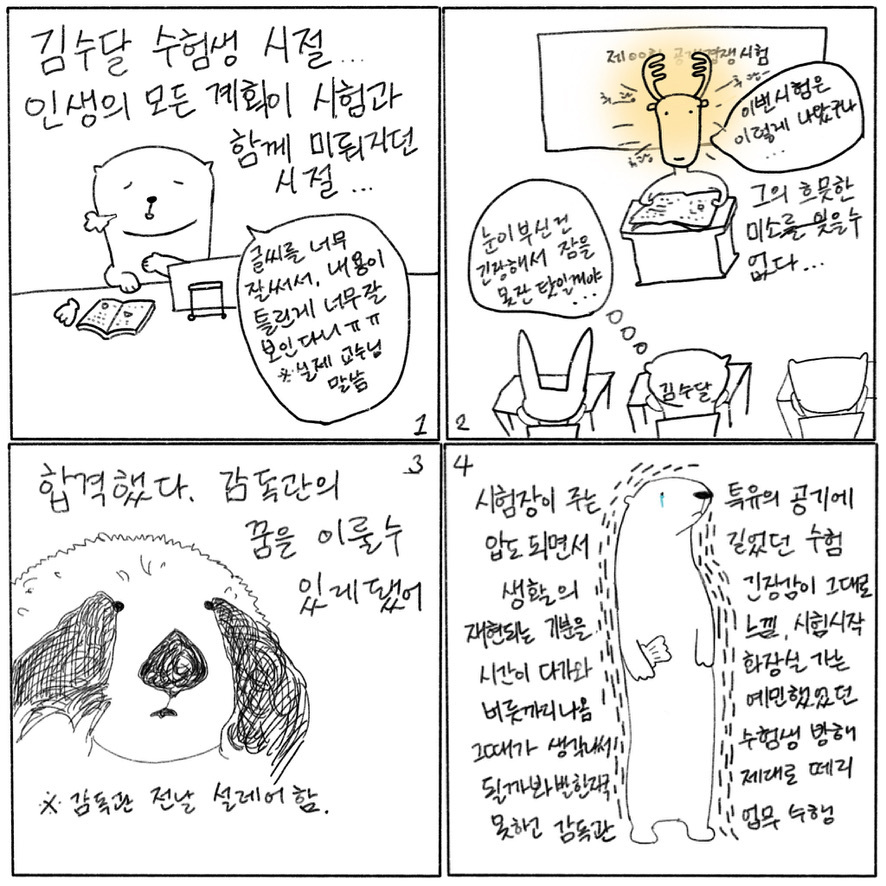 김수달 수험생 시절...
인생의 모든 계획이 시험과
함께 미뤄지던
시절...
글씨를 너무
잘써서, 내용이
틀린게 너무잘
보인다니 ㅠㅠ
※실제 교수님
말씀
1
제00회 공개경쟁시험
후광
후광
후광
이번시험은
이렇게 나왔구나
...
그의 흐뭇한
미소를 잊을수
없다...
눈이부신건
긴장해서 잠을
못잔 탓일꺼야
...
김수달
2
3
합격했다. 감독관의
꿈을 이룰수
있게됐어
※ 감독관 전날 설레어함.
4
시험장이 주는 특유의 공기에
압도되면서 길었던 수험
생활의 긴장감이 그대로
재현되는 기분을 느낌, 시험시작
시간이 다가와 화장실 가는
버릇까지나옴 예민했었던
그때가 생각나서 수험생 방해
될까봐 발한자국 제대로 떼지
못하고 감독관 업무 수행